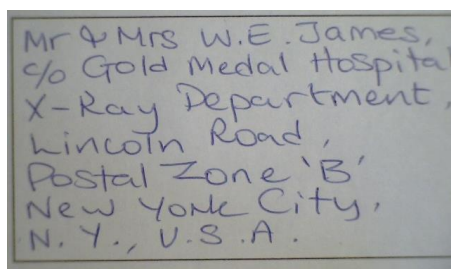 Mr & Mrs W.E. James,
c/o Gold Medal Hospital
X-Ray Department,
Lincoln Road,
Postal Zone 'B'
New York City,
N.Y., U.S.A.